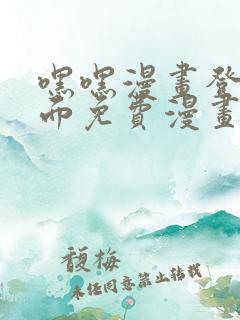 嘿嘿漫畫登
而免費漫畫
馥梅
未经同意禁止转载